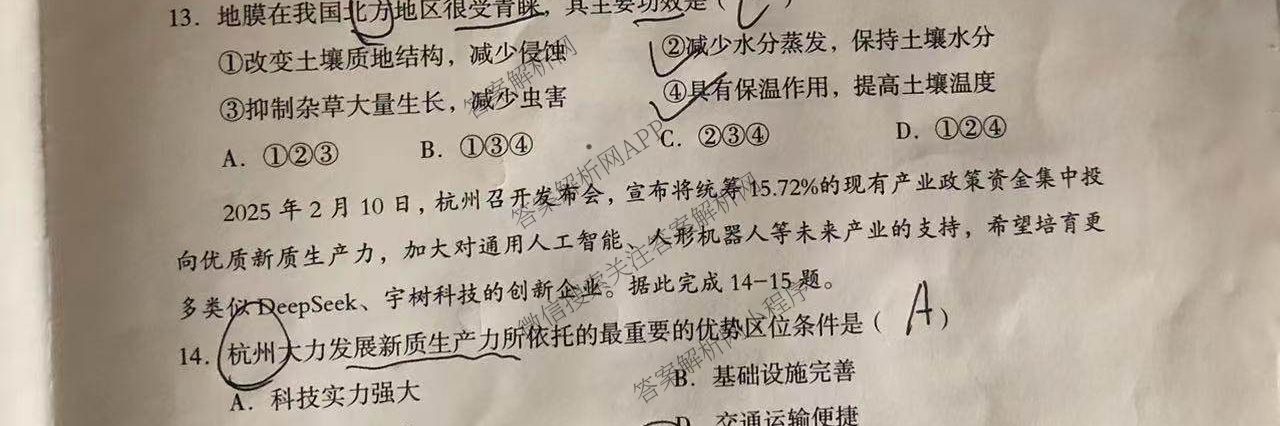 13. 地膜在我国北方地区很受青睐，其主要功效是（ C ）
①改变土壤质地结构，减少侵蚀 ②减少水分蒸发，保持土壤水分
③抑制杂草大量生长，减少虫害 ④具有保温作用，提高土壤温度
A. ①②③ B. ①③④ C. ②③④ D. ①②④
2025 年 2 月 10 日，杭州召开发布会，宣布将统筹 15.72%的现有产业政策资金集中投
向优质新质生产力，加大对通用人工智能、人形机器人等未来产业的支持，希望培育更
多类似 DeepSeek、宇树科技的创新企业。据此完成 14-15 题。
14. 杭州大力发展新质生产力所依托的最重要的优势区位条件是（ A ）
A. 科技实力强大 B. 基础设施完善
D. 交通运输便捷
答案解析网
答案解析网APP
微信搜索关注答案解析网
答案解析网小程序